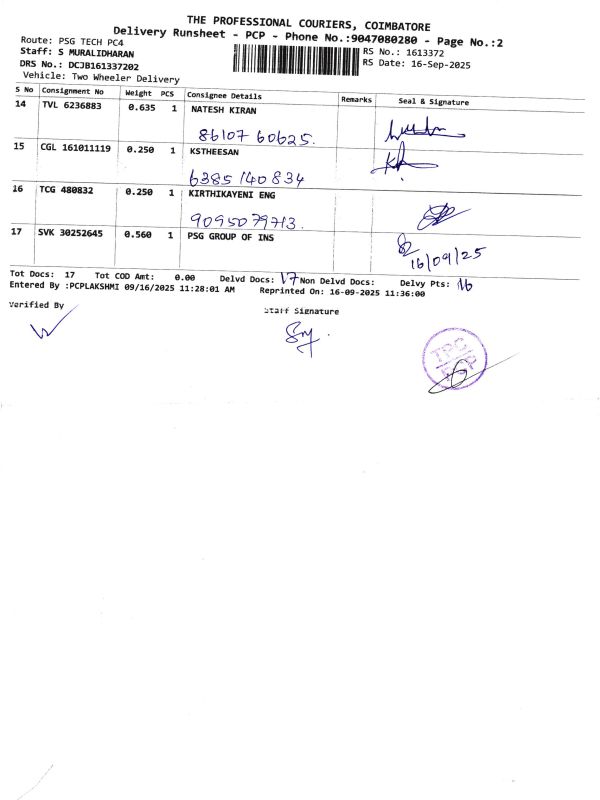 THE PROFESSIONAL COURIERS, COIMBATORE
Delivery Runsheet - PCP - Phone No.:9047080280 - Page No.:2
Route: PSG TECH PC4
Staff: S MURALIDHARAN
RS No.: 1613372
DRS No.: DCJB161337202
RS Date: 16-Sep-2025
Vehicle: Two Wheeler Delivery
S No Consignment No Weight PCS Consignee Details Remarks Seal & Signature
14 TVL 6236883 0.635 1 NATESH KIRAN
86107 60625.
15 CGL 161011119 0.250 1 KSTHEESAN
6385 140834
16 TCG 480832 0.250 1 KIRTHIKAYENI ENG
9095079713.
17 SVK 30252645 0.560 1 PSG GROUP OF INS
16/09/25
Tot Docs: 17 Tot COD Amt: 0.00 Delvd Docs: 17 Non Delvd Docs: Delvy Pts: 16
Entered By :PCPLAKSHMI 09/16/2025 11:28:01 AM Reprinted On: 16-09-2025 11:36:00
Verified By
Staff Signature
TPC